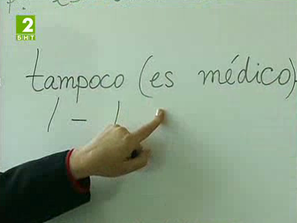 2
БНТ
tampoco (es médico)
/ - /